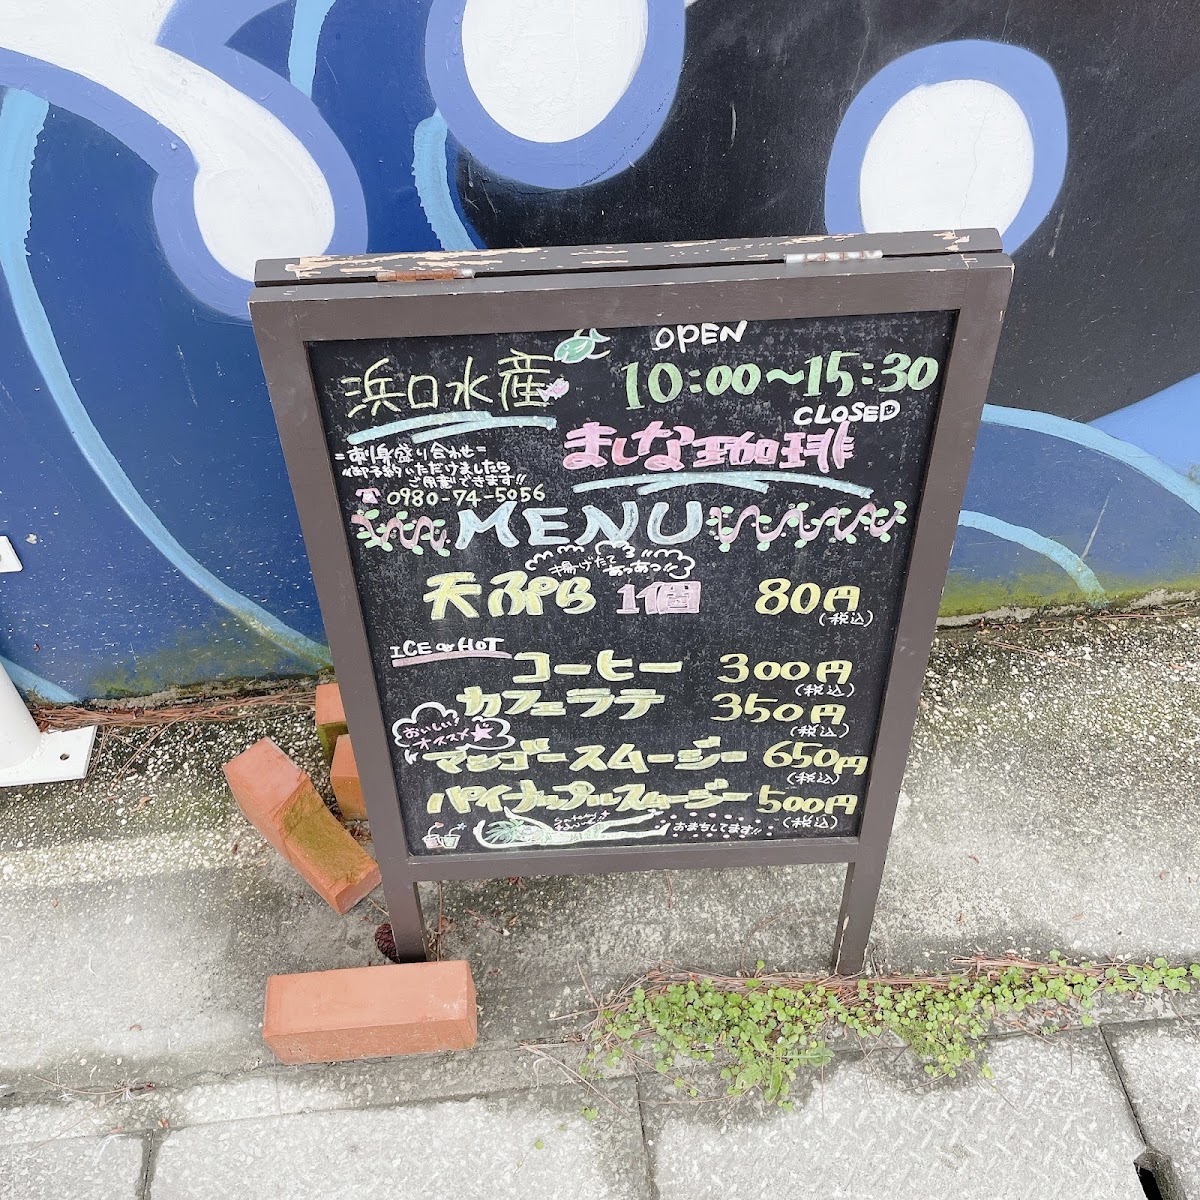 OPEN
浜口水産
10:00~15:30
CLOSED
ましな珈琲
=刺身盛り合わせ=
御予約いただけましたら
ご用意できます!!
☎ 0980-74-5056
MENU
揚げたて
あつあつ!!
天ぷら 1個 80円
(税込)
ICE or HOT
コーヒー 300円
(税込)
カフェラテ 350円
(税込)
おいしい!
オススメ
マンゴースムージー 650円
(税込)
パイナップルスムージー 500円
(税込)
おまちしてます!!